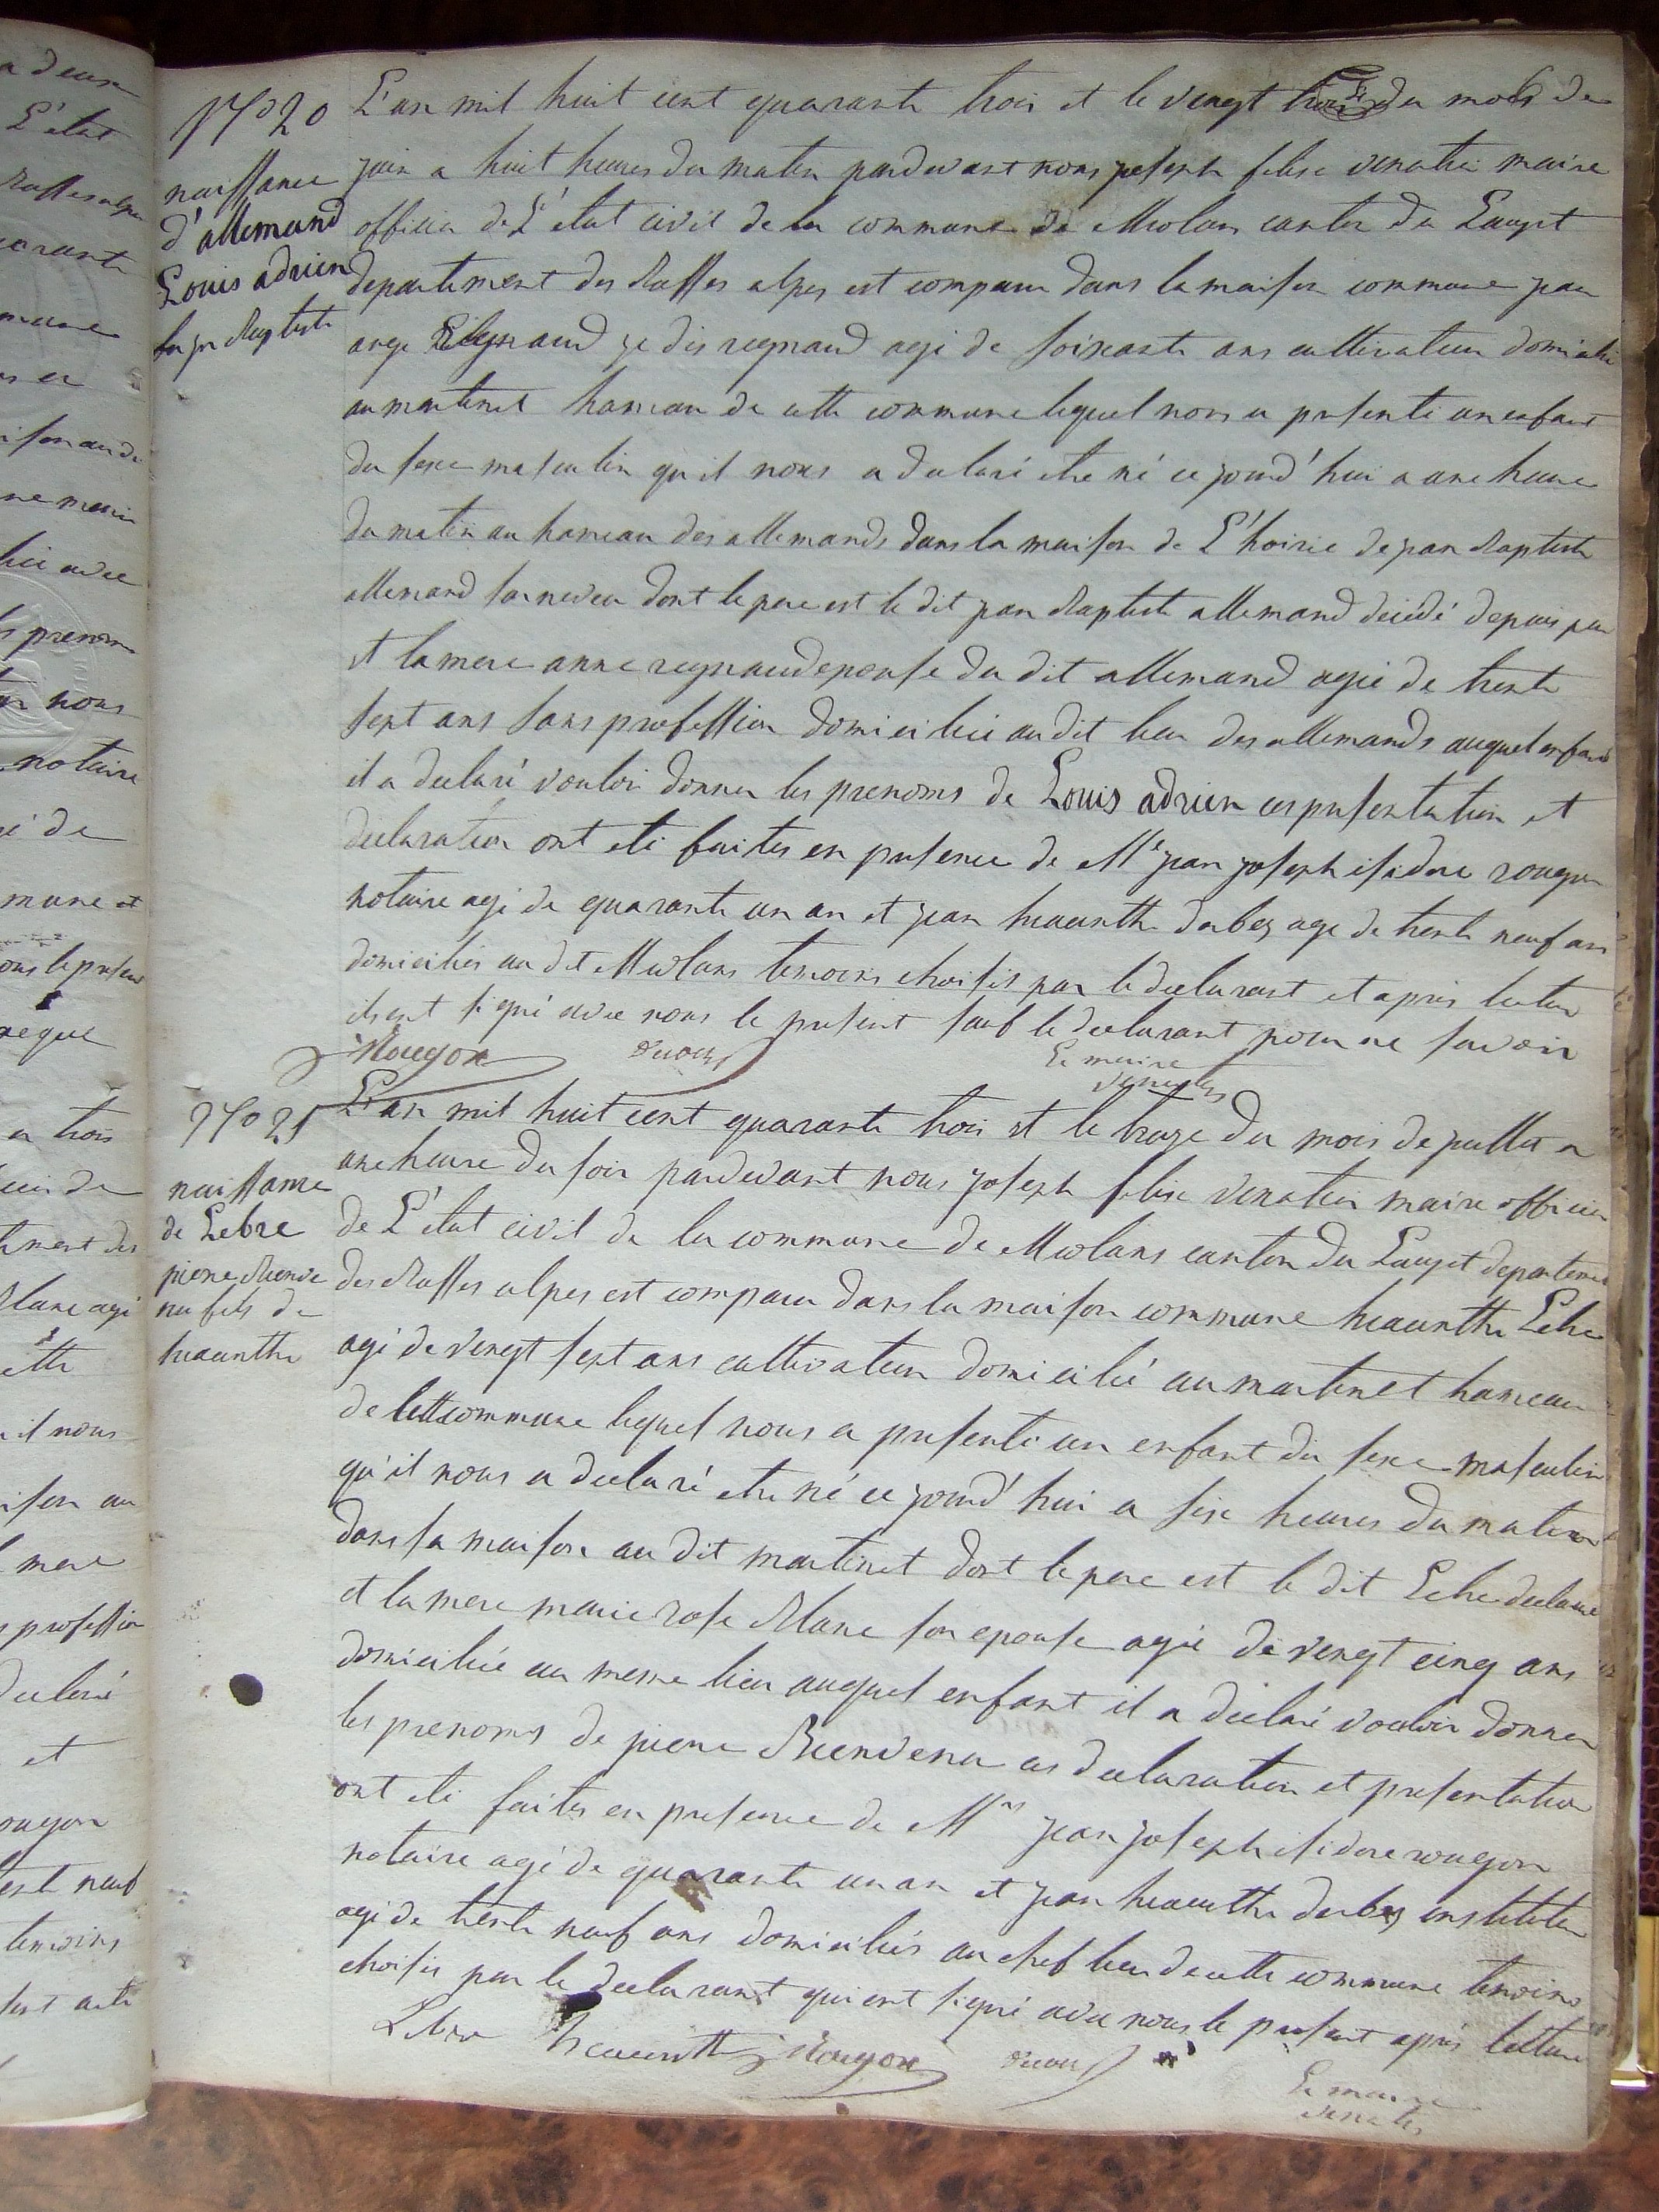 N° 20
naissance
d'allemand
Louis adrien
de jn Baptiste
L'an mil huit cent quarante trois et le vingt du mois de
juin a huit heures du matin pardevant nous joseph felise venatier maire
officier de L'état civil de la commune de Meolans canton du Lauzet
departement des Basses alpes est comparu dans la maison commune
ange regnaud je dis regnaud agé de soixante ans cultivateur domicilié
au martinet hameau de cette commune lequel nous a presenté un enfant
du sexe masculin qu'il nous a declaré etre né ce jourd'hui a une heure
du matin au hameau des allemands dans la maison de L'hoirie de jean Baptiste
allemand son neveu dont le pere est le dit jean Baptiste allemand décédé depuis peu
et la mere anne regnaud epouse du dit allemand agée de trente
sept ans sans profession domiciliée au dit lieu des allemands auquel enfant
il a declaré vouloir donner les prenoms de Louis adrien ces presentation et
declaration ont eté faites en presence de Me jean joseph isidore rougon
notaire agé de quarante un an et jean hiacinthe derbez age de trente neuf ans
domiciliés au dit Meolans temoins choisis par le declarant et après lecture
ils ont signé avec nous le present sauf le declarant pour ne savoir
Rougon
Le maire
N° 21
naissance
de Lebre
pierre Bienve
nu fils de
hiacinthe
L'an mil huit cent quarante trois et le treize du mois de juillet a
une heure du soir pardevant nous joseph felise venatier maire officier
de L'état civil de la commune de Meolans canton du Lauzet departement
des Basses alpes est comparu dans la maison commune hiacinthe Lebre
agé de vingt sept ans cultivateur domicilié au martinet hameau
de cette commune lequel nous a presenté un enfant du sexe masculin
qu'il nous a declaré etre né ce jourd'hui a six heures du matin
dans sa maison au dit martinet dont le pere est le dit Lebre declarant
et la mere marie rose Blanc son epouse agée de vingt cinq ans
domiciliée au meme lieu auquel enfant il a déclaré vouloir donner
les prenoms de pierre Bienvenu ces declaration et presentation
ont eté faites en presence de Mrs jean joseph isidore rougon
notaire agé de quarante un an et jean hiacinthe derbez instituteur
agé de trente neuf ans domiciliés au chef lieu de cette commune temoins
choisis par le declarant qui ont signé avec nous le present après lecture
Lebre hiacinthe Rougon
Le maire